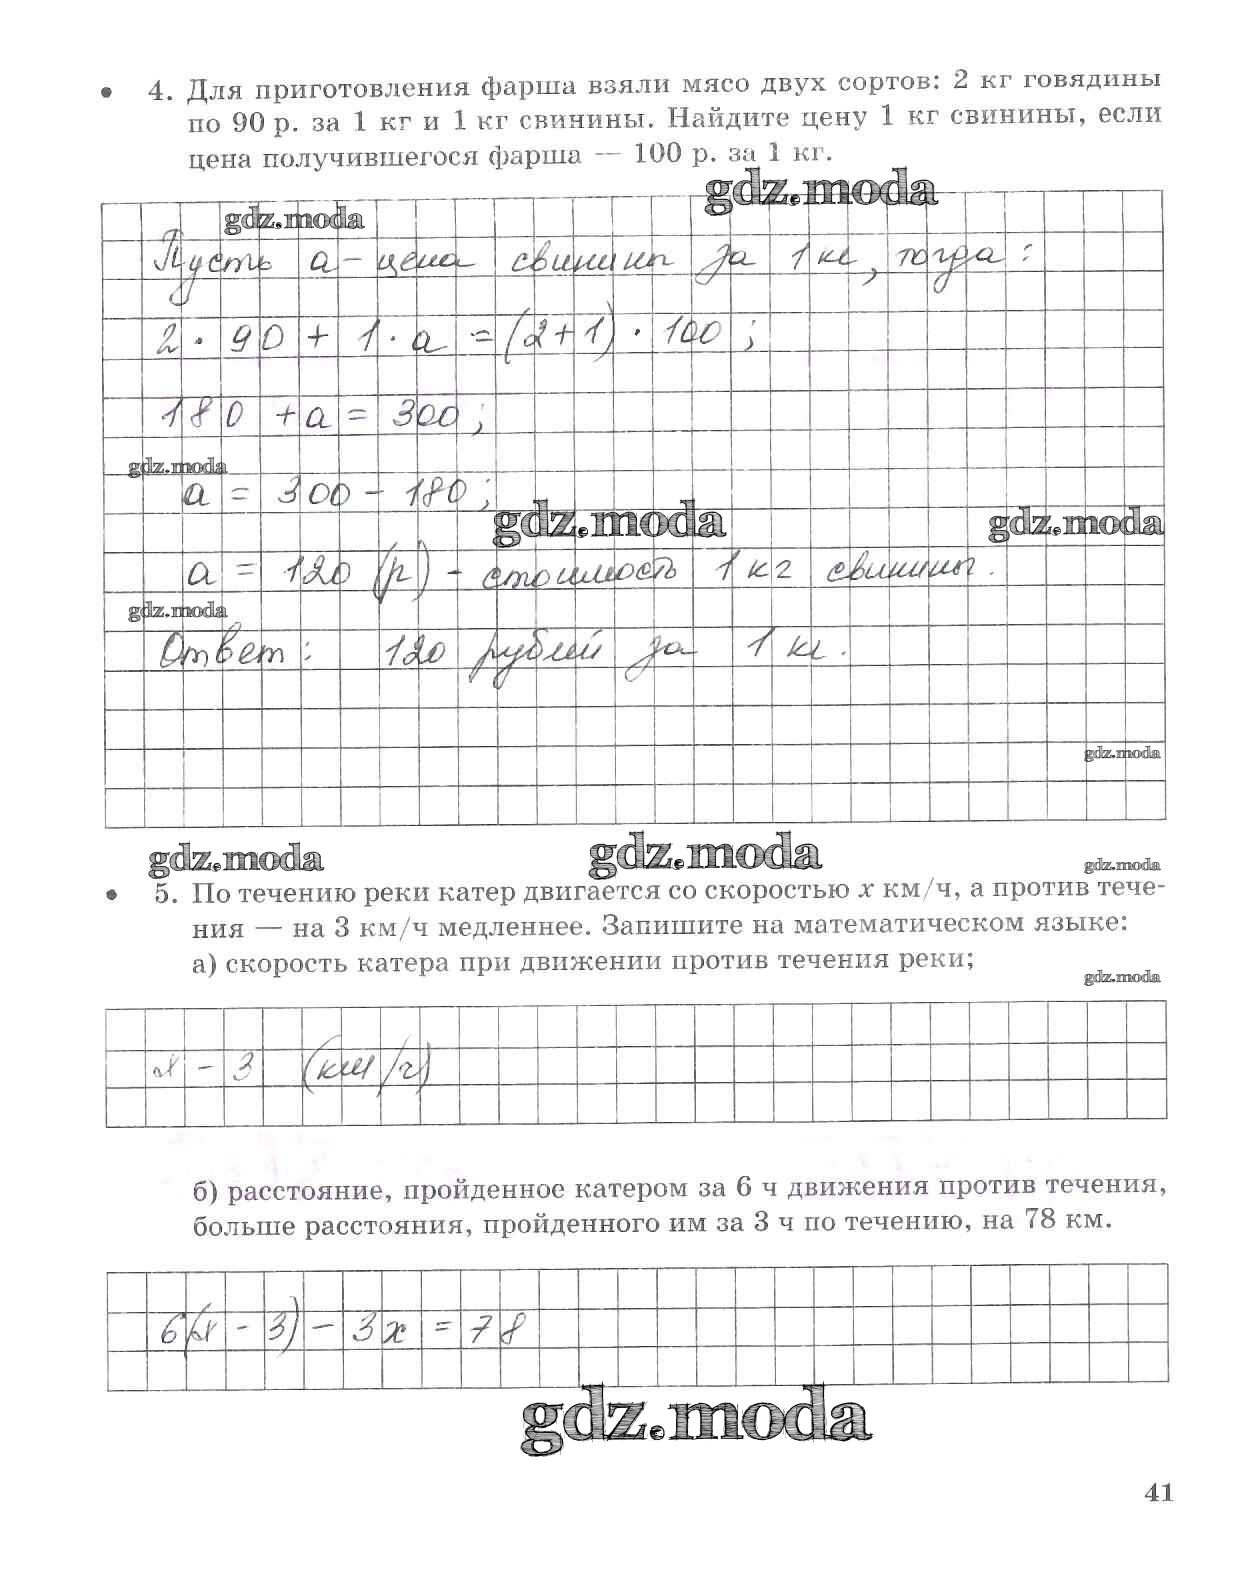 • 4. Для приготовления фарша взяли мясо двух сортов: 2 кг говядины
по 90 р. за 1 кг и 1 кг свинины. Найдите цену 1 кг свинины, если
цена получившегося фарша — 100 р. за 1 кг.
gdz.moda
gdz.moda
Пусть a – цена свинины за 1 кг, тогда:
2 · 90 + 1 · a = (2+1) · 100 ;
180 + a = 300 ;
gdz.moda
a = 300 – 180 ;
gdz.moda gdz.moda
a = 120 (р) – стоимость 1 кг свинины.
gdz.moda
Ответ: 120 рублей за 1 кг.
gdz.moda
gdz.moda gdz.moda gdz.moda
• 5. По течению реки катер двигается со скоростью x км/ч, а против тече-
ния — на 3 км/ч медленнее. Запишите на математическом языке:
а) скорость катера при движении против течения реки;
gdz.moda
x – 3 (км/ч)
б) расстояние, пройденное катером за 6 ч движения против течения,
больше расстояния, пройденного им за 3 ч по течению, на 78 км.
6(x – 3) – 3x = 78
gdz.moda
41